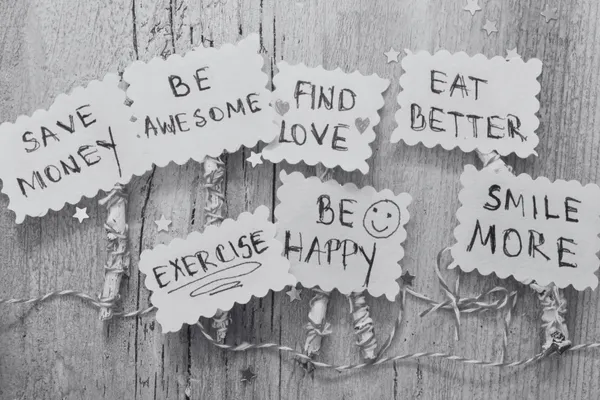 SAVE
MONEY
BE
AWESOME
FIND
LOVE
EAT
BETTER
EXERCISE
BE
HAPPY
SMILE
MORE